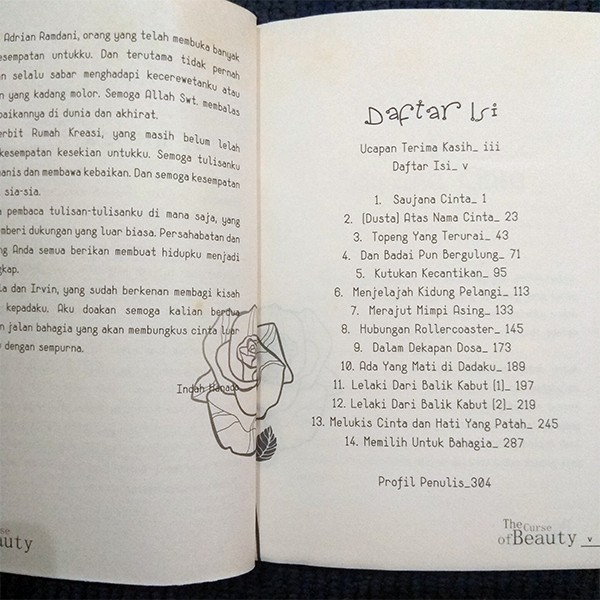 Adrian Ramdani, orang yang telah membuka banyak
sempatan untukku. Dan terutama tidak pernah
selalu sabar menghadapi kecerewetanku atau
yang kadang molor. Semoga Allah Swt. membalas
baikannya di dunia dan akhirat.
erbit Rumah Kreasi, yang masih belum lelah
kesempatan kesekian untukku. Semoga tulisanku
manis dan membawa kebaikan. Dan semoga kesempatan
sia-sia.
pembaca tulisan-tulisanku di mana saja, yang
mberi dukungan yang luar biasa. Persahabatan dan
ng Anda semua berikan membuat hidupku menjadi
gkap.
la dan Irvin, yang sudah berkenan membagi kisah
kepadaku. Aku doakan semoga kalian berdua
n jalan bahagia yang akan membungkus cinta luar
dengan sempurna.
Indah Hanaco
The Curse
of Beauty
Daftar Isi
Ucapan Terima Kasih_ iii
Daftar Isi_ v
1. Saujana Cinta_ 1
2. (Dusta) Atas Nama Cinta_ 23
3. Topeng Yang Terurai_ 43
4. Dan Badai Pun Bergulung_ 71
5. Kutukan Kecantikan_ 95
6. Menjelajah Kidung Pelangi_ 113
7. Merajut Mimpi Asing_ 133
8. Hubungan Rollercoaster_ 145
9. Dalam Dekapan Dosa_ 173
10. Ada Yang Mati di Dadaku_ 189
11. Lelaki Dari Balik Kabut (1)_ 197
12. Lelaki Dari Balik Kabut (2)_ 219
13. Melukis Cinta dan Hati Yang Patah_ 245
14. Memilih Untuk Bahagia_ 287
Profil Penulis_304
The Curse
of Beauty v